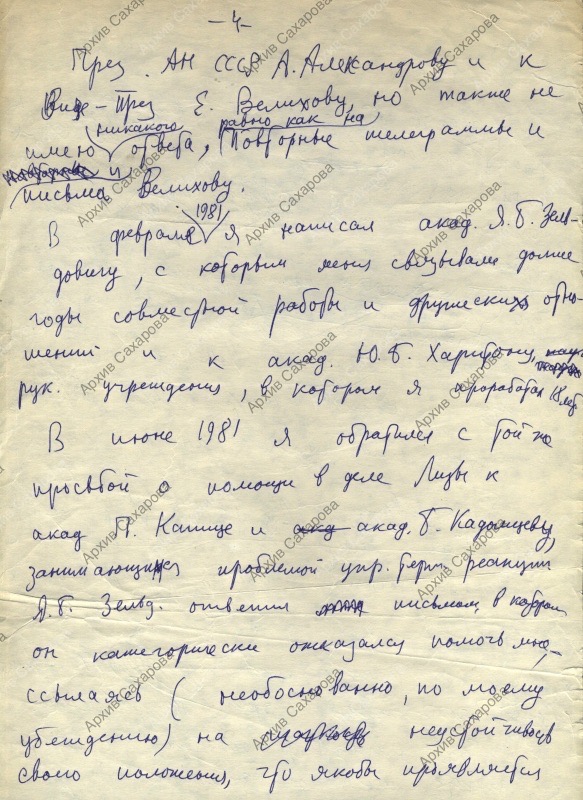 -4-
През. АН СССР А. Александрову и к
Вице-През Е. Велихову, но также не
имею никакого ответа, равно как на повторные телеграммы и
письма Велихову.
В феврале 1981 я написал акад. Я.Б. Зель-
довичу, с которым меня связывали долгие
годы совместной работы и дружеских отно-
шений и к акад. Ю.Б. Харитону,
рук. учреждения, в котором я проработал 18 лет
В июне 1981 я обратился с той же
просьбой о помощи в деле Лизы к
акад П. Капице и акад. Б. Кадомцеву,
занимающимся проблемой упр. терм. реакции
Я.Б. Зельд. ответил письмом, в котором
он категорически отказался помочь мне,
ссылаясь (необоснованно, по моему
убеждению) на неустойчивость
своего положения, что якобы проявляется
Архив Сахарова